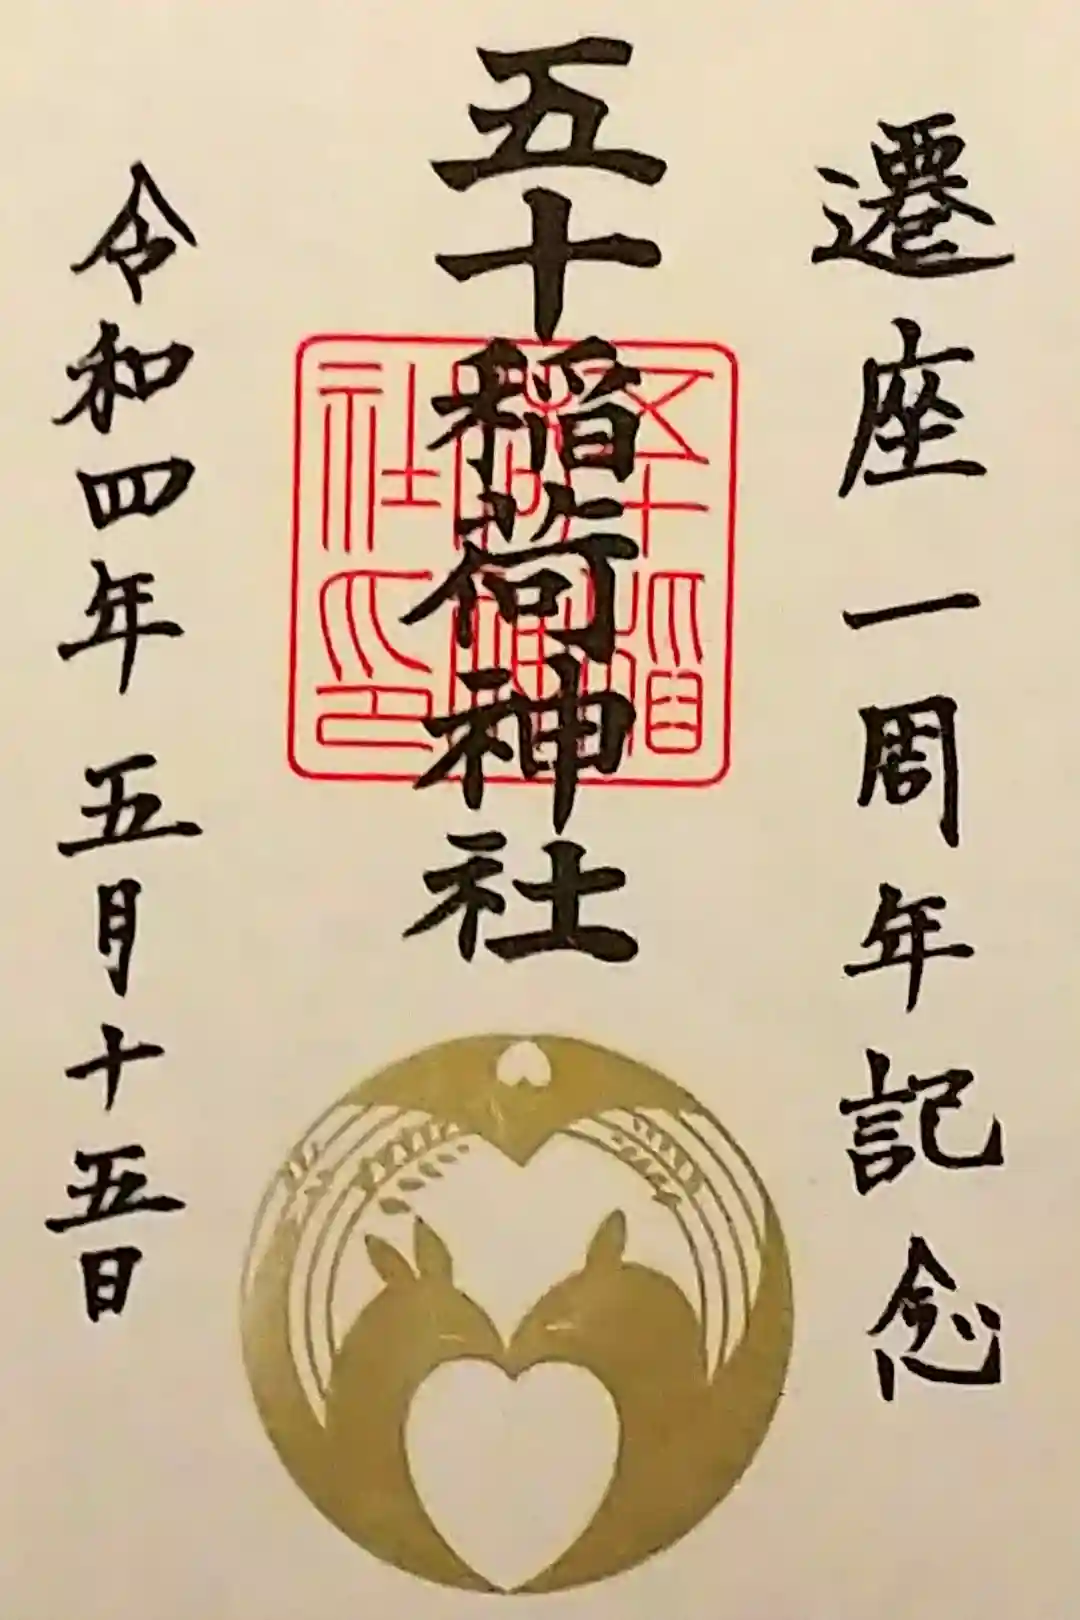 遷座一周年記念
五十稲荷神社
五十稲荷神社印
令和四年五月十五日